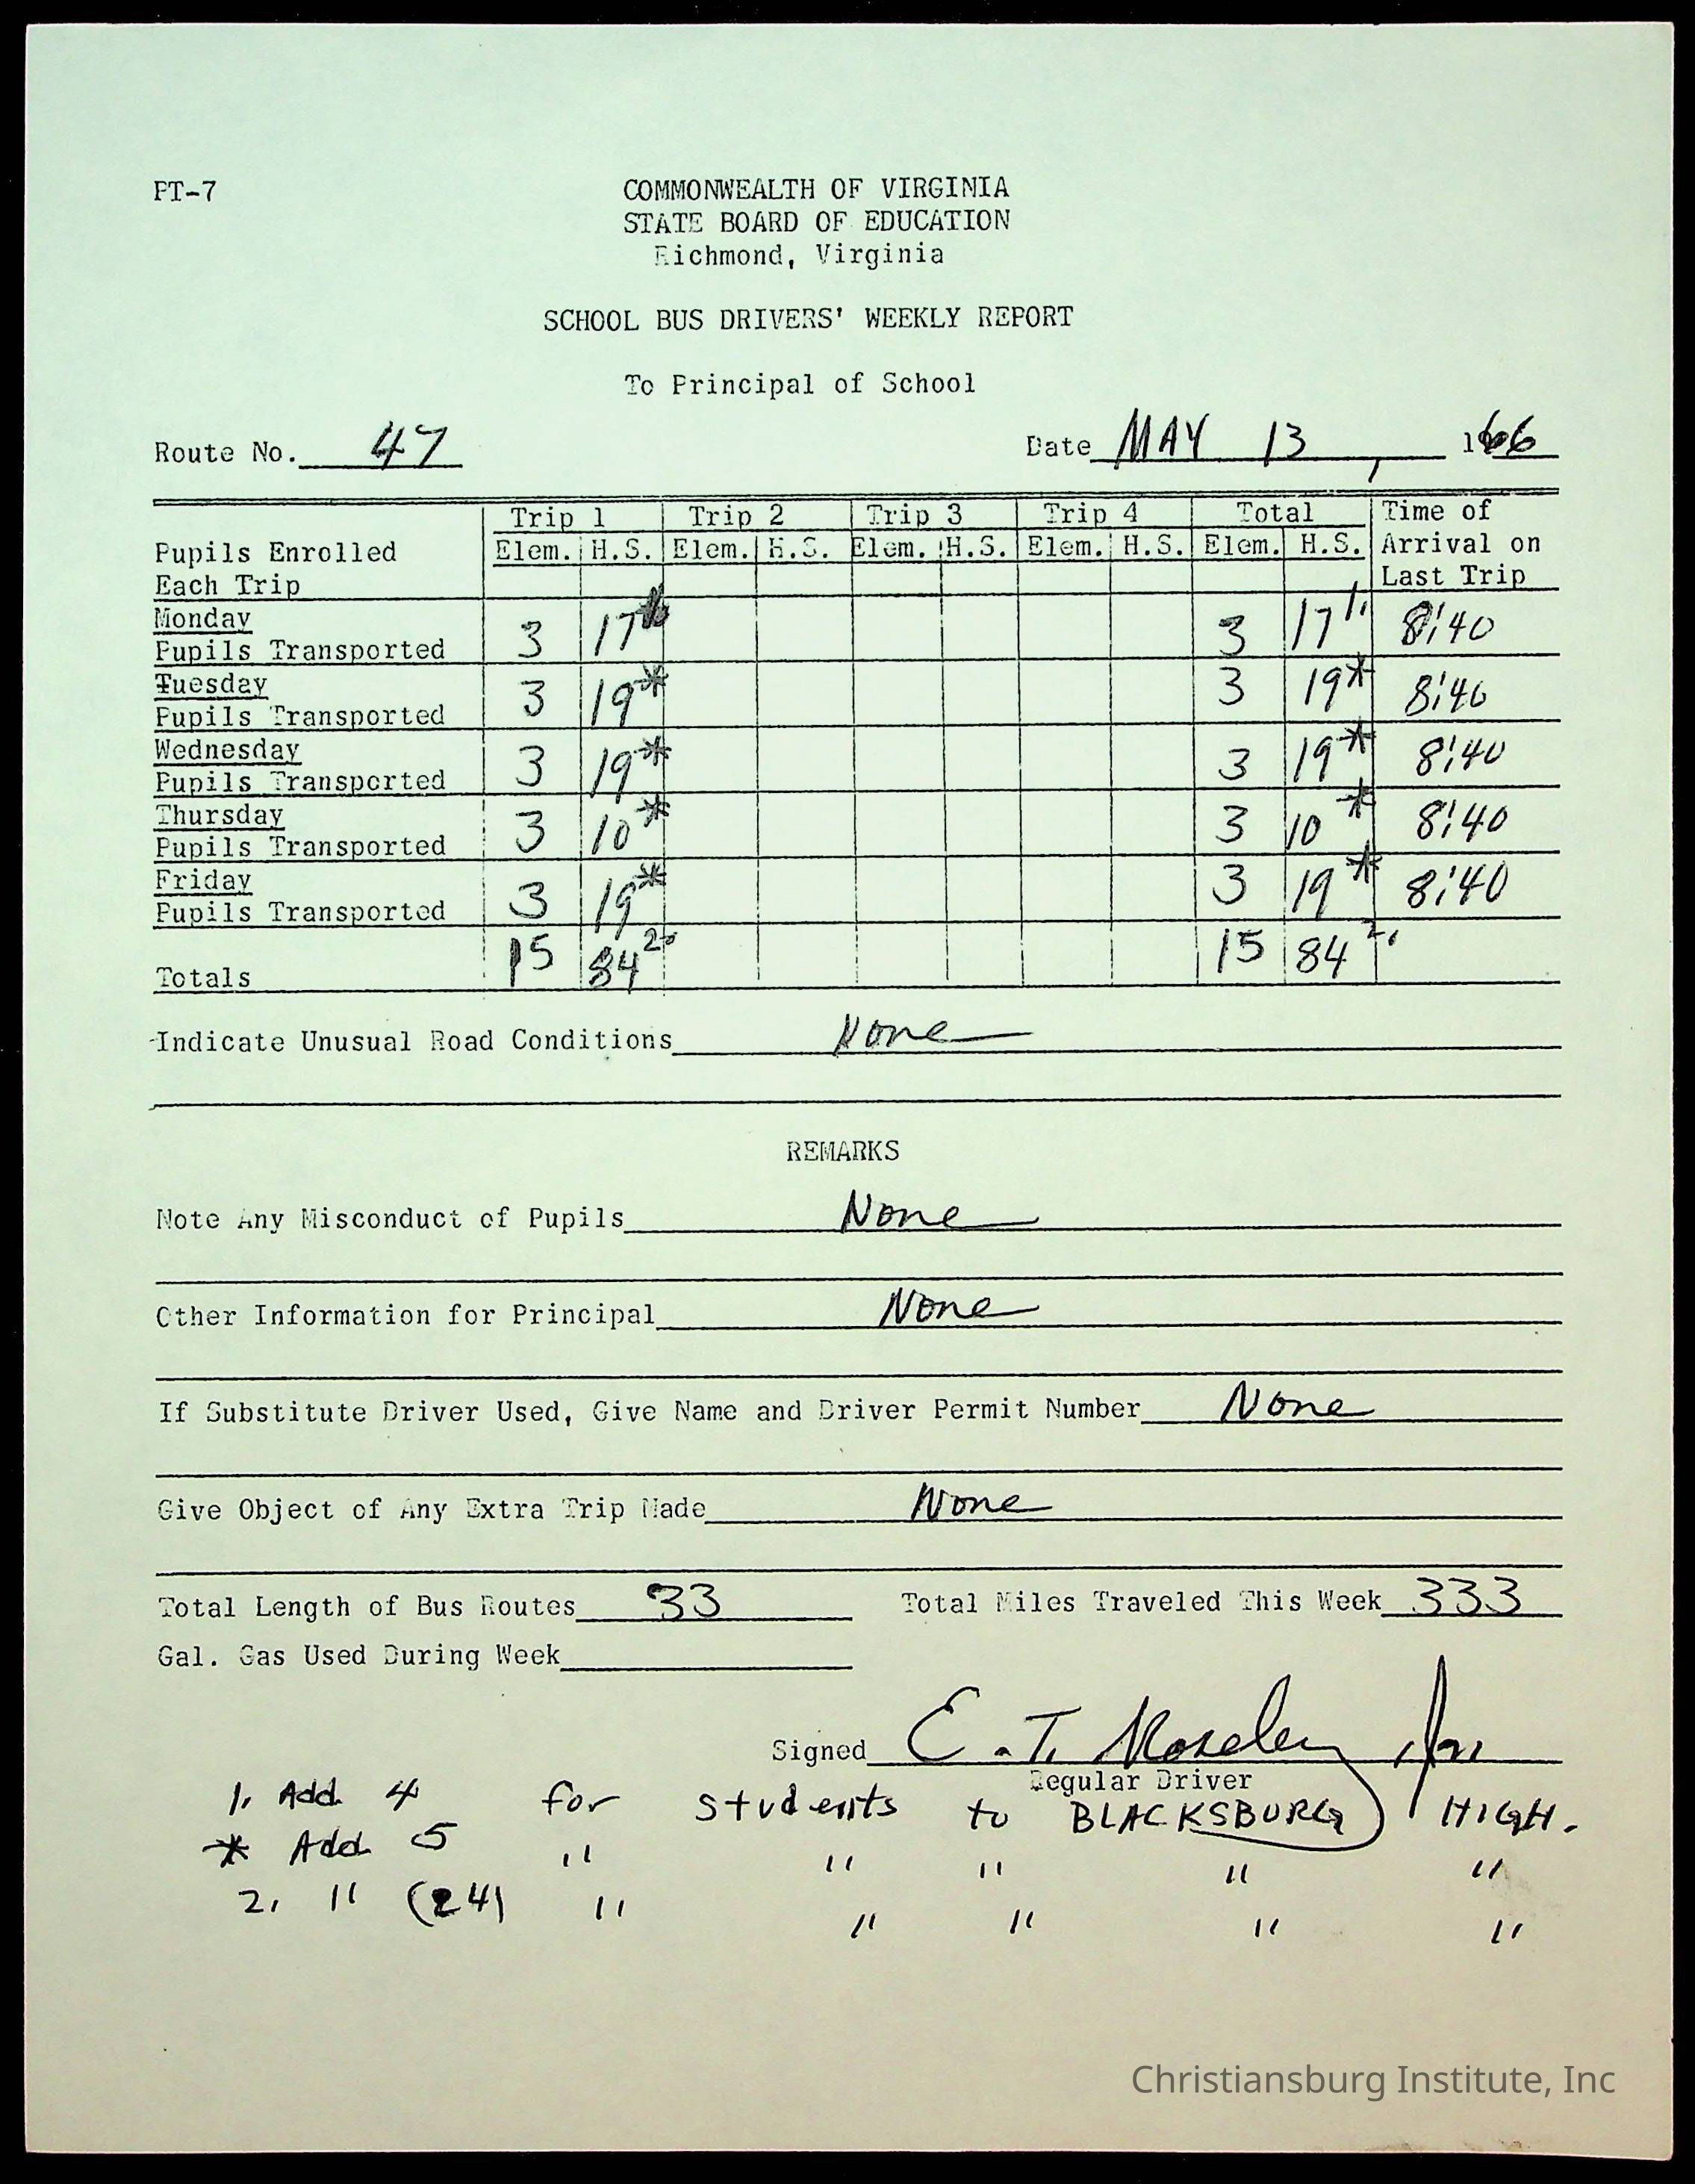 PT-7
COMMONWEALTH OF VIRGINIA
STATE BOARD OF EDUCATION
Richmond, Virginia
SCHOOL BUS DRIVERS' WEEKLY REPORT
To Principal of School
Route No. 47 Date MAY 13, 1966
Trip 1 Trip 2 Trip 3 Trip 4 Total Time of
Pupils Enrolled Elem. H.S. Elem. H.S. Elem. H.S. Elem. H.S. Elem. H.S. Arrival on
Each Trip Last Trip
Monday
Pupils Transported 3 17 3 17 1. 8:40
Tuesday
Pupils Transported 3 19* 3 19* 8:40
Wednesday
Pupils Transported 3 19* 3 19* 8:40
Thursday
Pupils Transported 3 10* 3 10* 8:40
Friday
Pupils Transported 3 19* 3 19* 8:40
Totals 15 84 2. 15 84 2.
Indicate Unusual Road Conditions None
REMARKS
Note Any Misconduct of Pupils None
Other Information for Principal None
If Substitute Driver Used, Give Name and Driver Permit Number None
Give Object of Any Extra Trip Made None
Total Length of Bus Routes 33 Total Miles Traveled This Week 333
Gal. Gas Used During Week
Signed E. T. Moseley, Jr.
Regular Driver
1. Add 4 for students to BLACKSBURG HIGH.
* Add 5 " " " " "
2. " (24) " " " " "
Christiansburg Institute, Inc